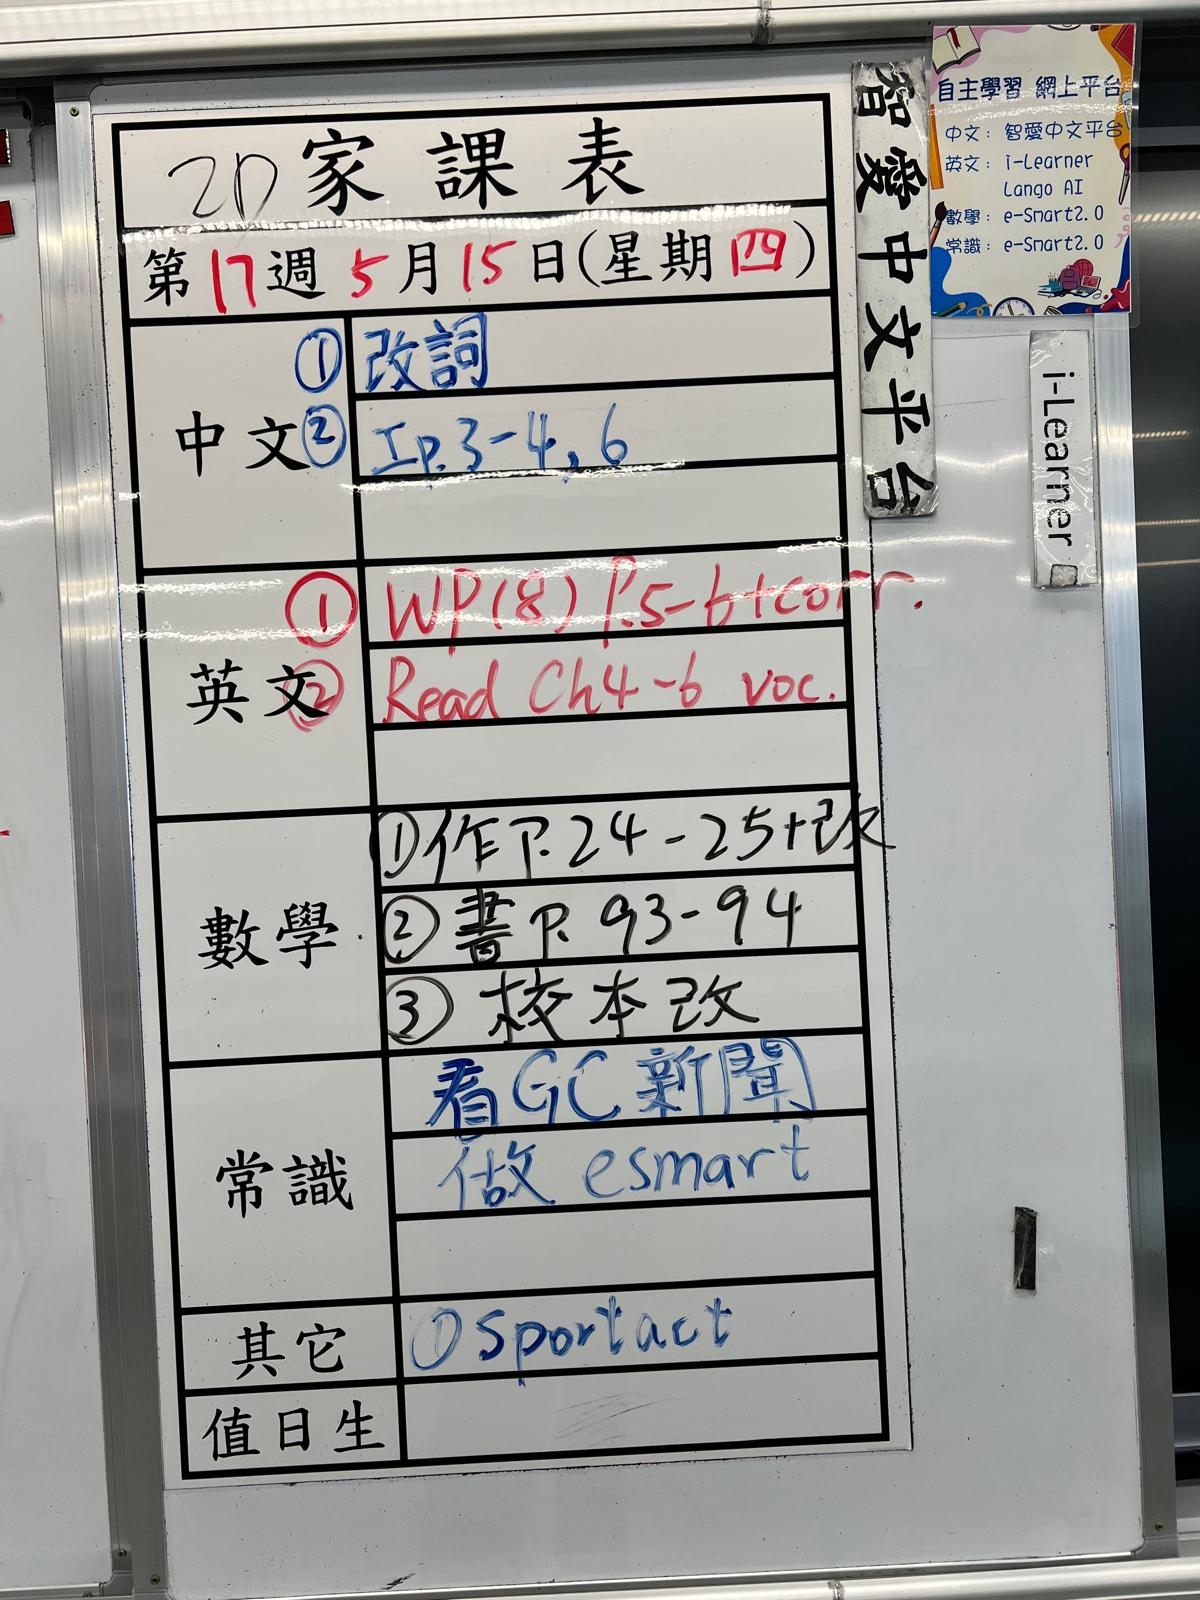 2D 家課表
第17週5月15日(星期四)
中文
① 改詞
② 工p.3-4, 6
英文
① WP(8) P.5-6+corr.
② Read Ch4-6 voc.
數學
① 作P.24-25+改
② 書P.93-94
③ 校本改
常識
看GC新聞
做 esmart
其它
① Sportact
值日生
智愛中文平台
自主學習 網上平台
中文: 智愛中文平台
英文: i-Learner
Lango AI
數學: e-Smart2.0
常識: e-Smart2.0
i-Learner